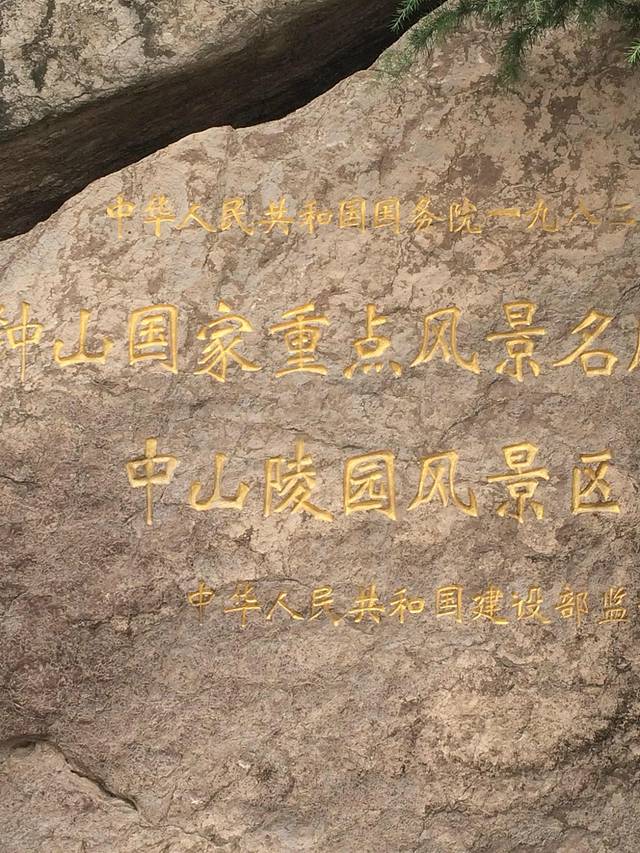 中华人民共和国国务院一九八二
钟山国家重点风景名
中山陵园风景区
中华人民共和国建设部监